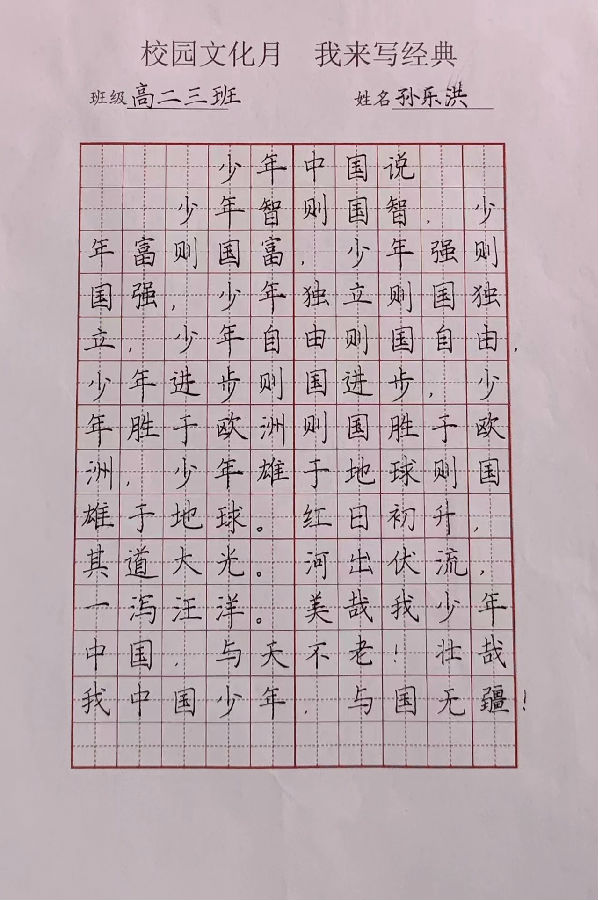 校园文化月 我来写经典
班级 高二三班 姓名 孙乐洪
少年中国说
少年智则国智，少
年富则国富，少年强则
国强，少年独立则国独
立，少年自由则国自由，
少年进步则国进步，少
年胜于欧洲则国胜于欧
洲，少年雄于地球则国
雄于地球。红日初升，
其道大光。河出伏流，
一泻汪洋。美哉我少年
中国，与天不老！壮哉
我中国少年，与国无疆！